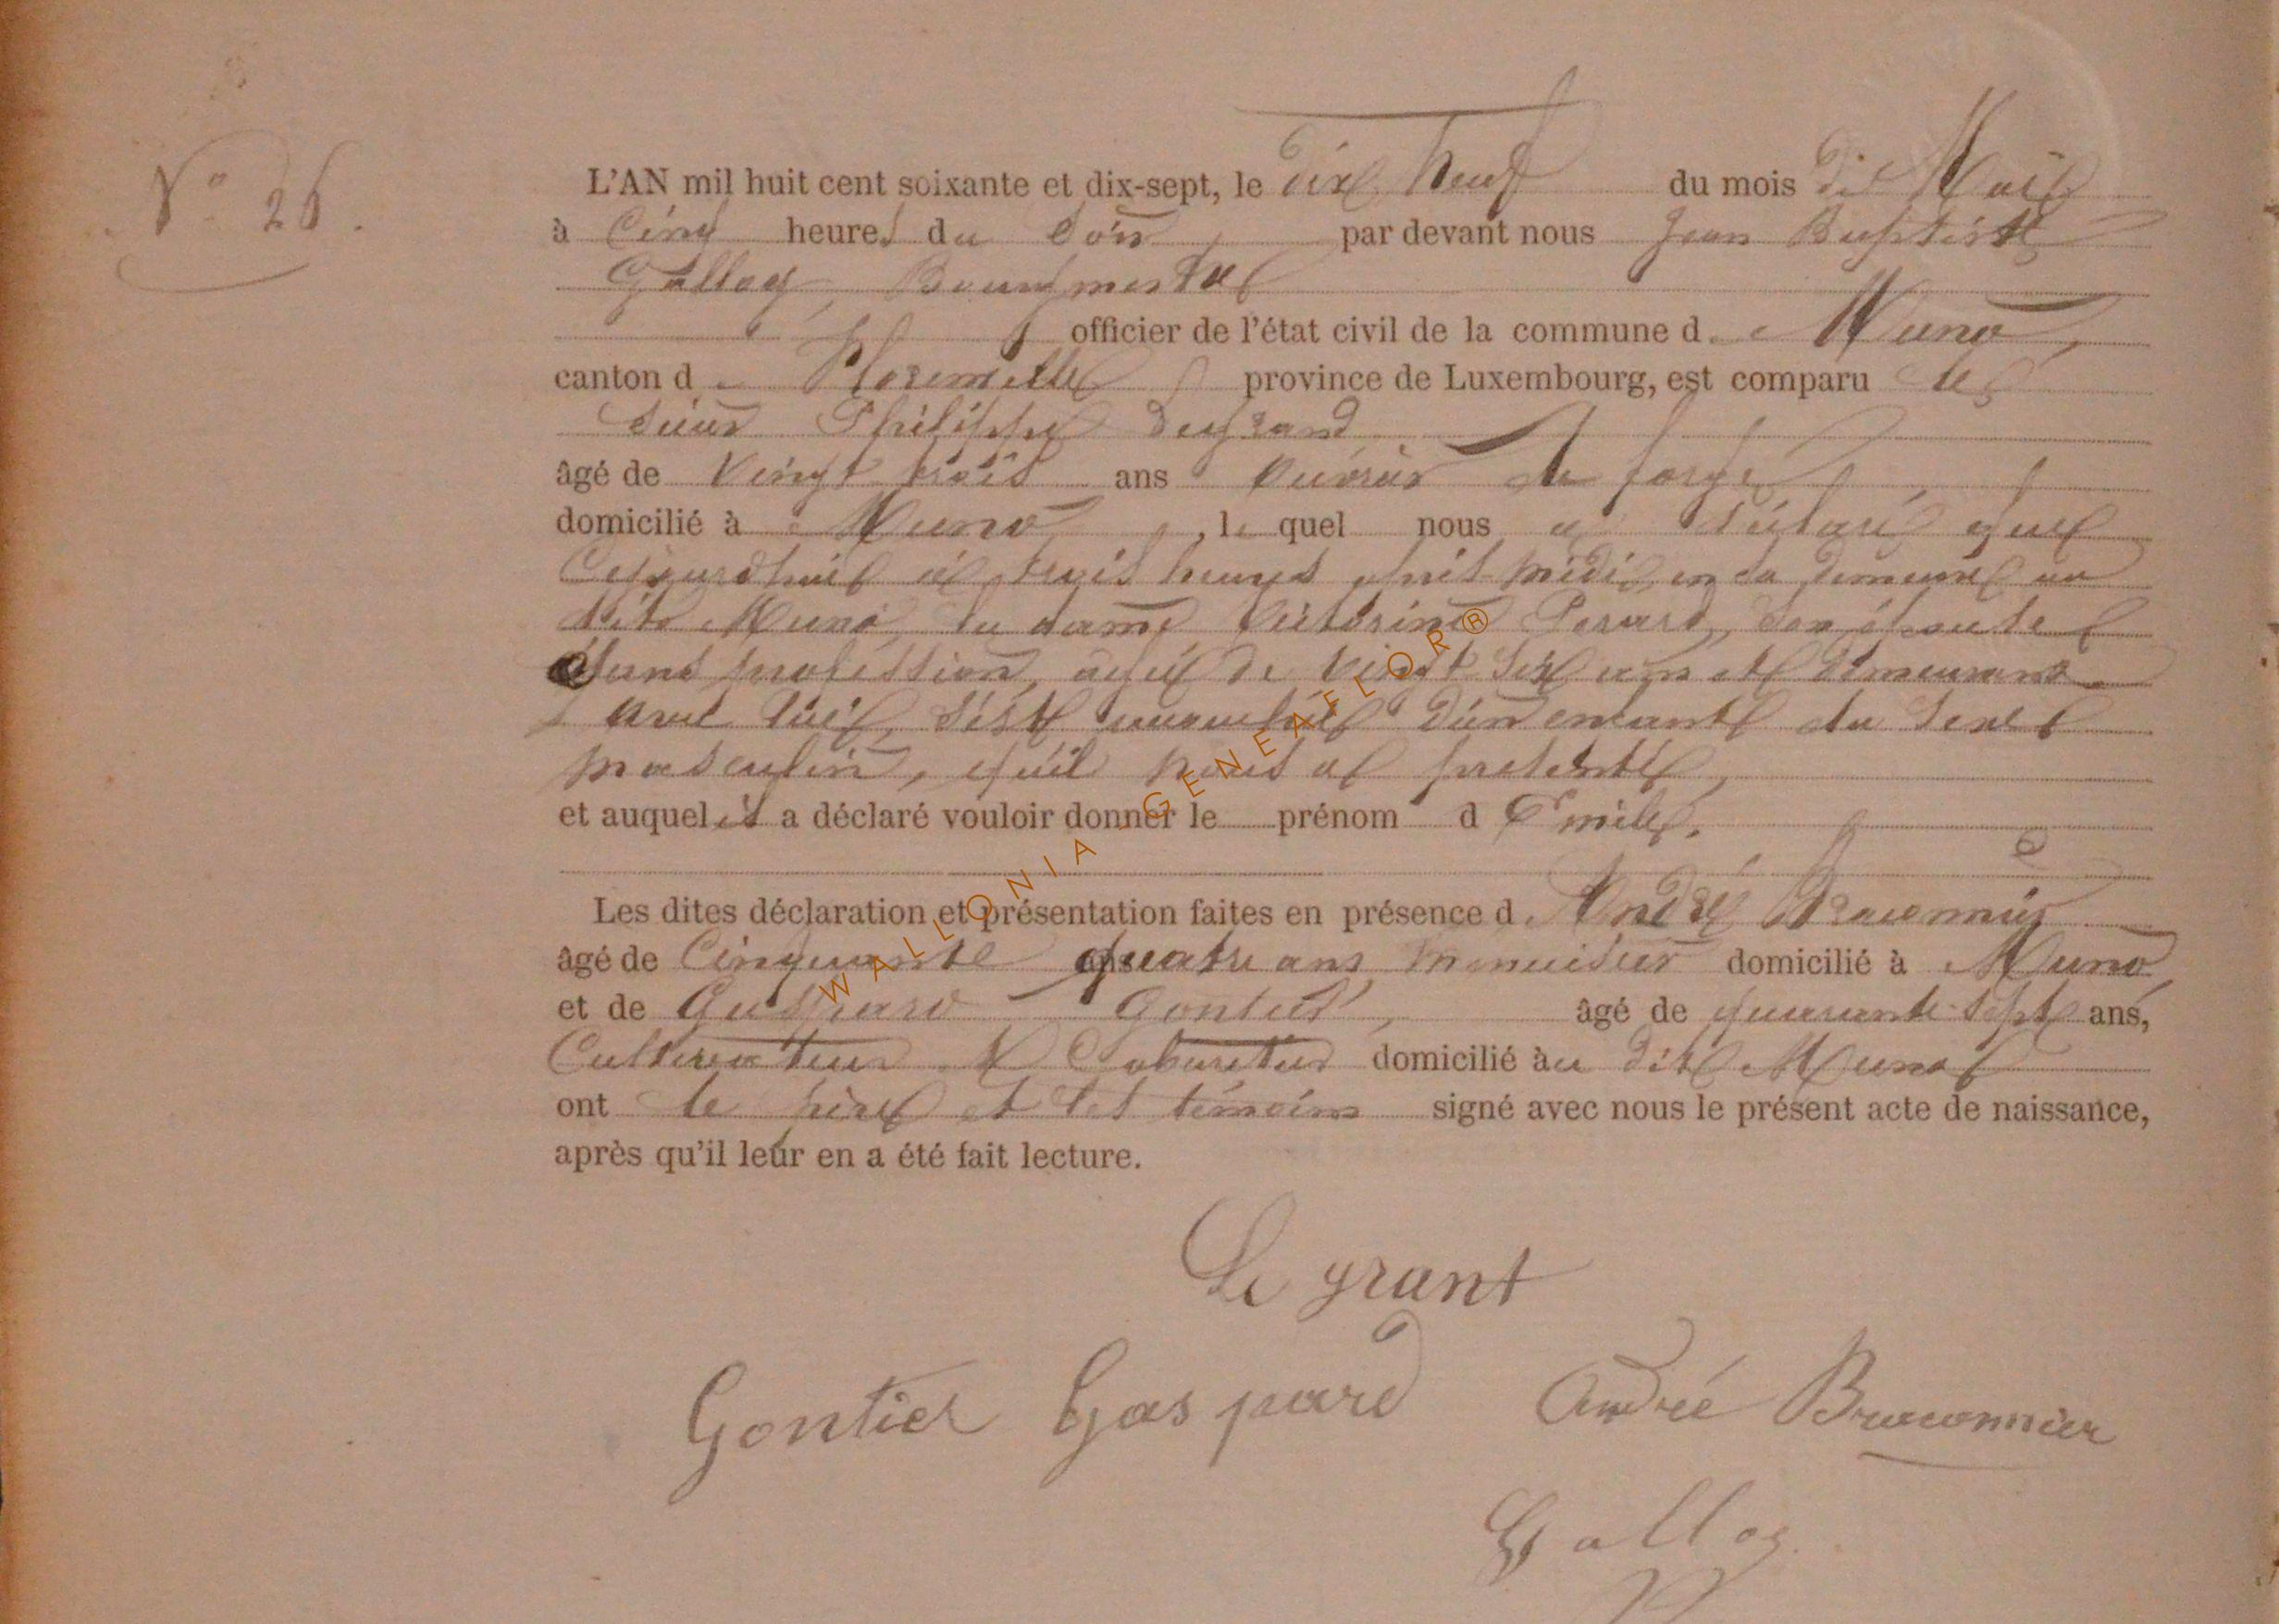 N° 26.
L'AN mil huit cent soixante et dix-sept, le dix neuf du mois de Mai
à Cinq heures du Soir, par devant nous Jean Baptiste
Galloy, Bourgmestre
officier de l'état civil de la commune de Muno,
canton de Florenville, province de Luxembourg, est comparu le
Sieur Philippe
âgé de vingt trois ans ouvrier de forge,
domicilié à Muno, le quel nous a déclaré que
Cejourd'hui à trois heures après midi, en sa demeure au
dit Muno, la dame Victorine Perard, son épouse
sans profession, agée de vingt six ans et demeurant
avec lui, s'est accouchée d'un enfant du sexe
masculin, qu'il nous a présenté,
et auquel il a déclaré vouloir donner le prénom d'Emile.
Les dites déclaration et présentation faites en présence d'André Braconnier
âgé de Cinquante quatre ans, menuisier domicilié à Muno,
et de Guspard Gontier, âgé de quarante sept ans,
Cultivateur & Cabaretier domicilié au dit Muno
ont le père et les témoins signé avec nous le présent acte de naissance,
après qu'il leur en a été fait lecture.
Le grant
Gontier Gaspard Andrée Braconnier
Galloy
WALLONIA - GENEAFLOR®